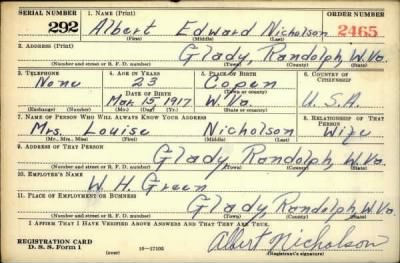 SERIAL NUMBER 1. NAME (Print) ORDER NUMBER
292 Albert Edward Nicholson 2465
(First) (Middle) (Last)
2. ADDRESS (Print)
Glady, Randolph, W. Va.
(Number and street or R. F. D. number) (Town) (County) (State)
3. TELEPHONE 4. AGE IN YEARS 5. PLACE OF BIRTH 6. COUNTRY OF CITIZENSHIP
None 23 Copen
DATE OF BIRTH (Town or county)
Mar. 15, 1917 W. Va. U. S. A.
(Exchange) (Number) (Mo.) (Day) (Yr.) (State or country)
7. NAME OF PERSON WHO WILL ALWAYS KNOW YOUR ADDRESS 8. RELATIONSHIP OF THAT PERSON
Mrs. Louise Nicholson Wife
(Mr., Mrs., Miss) (First) (Middle) (Last)
9. ADDRESS OF THAT PERSON
Glady, Randolph, W. Va.
(Number and street or R. F. D. number) (Town) (County) (State)
10. EMPLOYER'S NAME
W. H. Green
11. PLACE OF EMPLOYMENT OR BUSINESS
Glady, Randolph, W. Va.
(Number and street or R. F. D. number) (Town) (County) (State)
I AFFIRM THAT I HAVE VERIFIED ABOVE ANSWERS AND THAT THEY ARE TRUE.
REGISTRATION CARD
D. S. S. Form 1 (over) 16—17105 Albert Nicholson
(Registrant's signature)